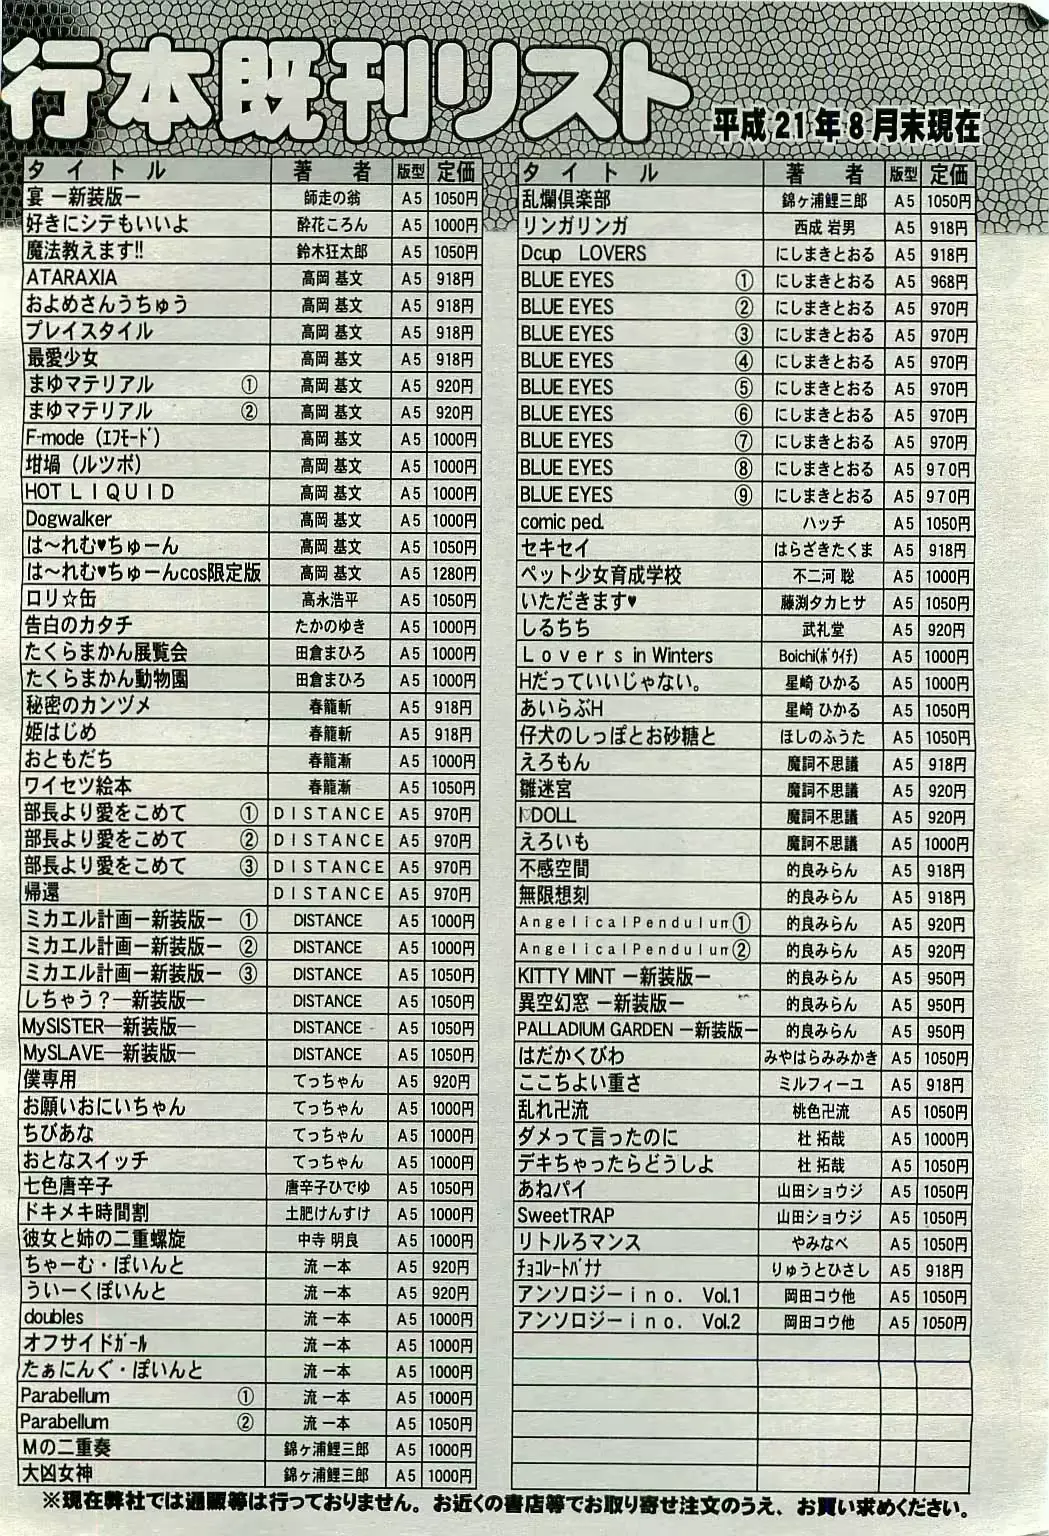 行本既刊リスト
平成21年8月末現在
タイトル 著者 版型 定価
宴 ー新装版ー 師走の翁 A5 1050円
好きにシテもいいよ 酔花ころん A5 1000円
魔法教えます!! 鈴木狂太郎 A5 1050円
ATARAXIA 高岡 基文 A5 918円
およめさんうちゅう 高岡 基文 A5 918円
プレイスタイル 高岡 基文 A5 918円
最愛少女 高岡 基文 A5 918円
まゆマテリアル ① 高岡 基文 A5 920円
まゆマテリアル ② 高岡 基文 A5 920円
F-mode（ｴﾌﾓｰﾄﾞ） 高岡 基文 A5 1000円
坩堝（ルツボ） 高岡 基文 A5 1000円
HOT LIQUID 高岡 基文 A5 1000円
Dogwalker 高岡 基文 A5 1000円
は～れむ♥ちゅーん 高岡 基文 A5 1050円
は～れむ♥ちゅーんcos限定版 高岡 基文 A5 1280円
ロリ☆缶 高永浩平 A5 1050円
告白のカタチ たかのゆき A5 1000円
たくらまかん展覧会 田倉まひろ A5 1000円
たくらまかん動物園 田倉まひろ A5 1000円
秘密のカンヅメ 春籠斬 A5 918円
姫はじめ 春籠斬 A5 918円
おともだち 春籠漸 A5 1000円
ワイセツ絵本 春籠漸 A5 1050円
部長より愛をこめて ① DISTANCE A5 970円
部長より愛をこめて ② DISTANCE A5 970円
部長より愛をこめて ③ DISTANCE A5 970円
帰還 DISTANCE A5 970円
ミカエル計画ー新装版ー ① DISTANCE A5 1000円
ミカエル計画ー新装版ー ② DISTANCE A5 1000円
ミカエル計画ー新装版ー ③ DISTANCE A5 1050円
しちゃう？―新装版― DISTANCE A5 1050円
MySISTER―新装版― DISTANCE A5 1050円
MySLAVE―新装版― DISTANCE A5 1050円
僕専用 てっちゃん A5 920円
お願いおにいちゃん てっちゃん A5 1000円
ちびあな てっちゃん A5 1000円
おとなスイッチ てっちゃん A5 1000円
七色唐辛子 唐辛子ひでゆ A5 1050円
ドキメキ時間割 土肥けんすけ A5 1000円
彼女と姉の二重螺旋 中寺 明良 A5 1000円
ちゃーむ・ぽいんと 流 一本 A5 920円
うぃーくぽいんと 流 一本 A5 920円
doubles 流 一本 A5 1000円
オフサイドｶﾞｰﾙ 流 一本 A5 1000円
たぁにんぐ・ぽいんと 流 一本 A5 1000円
Parabellum ① 流 一本 A5 1000円
Parabellum ② 流 一本 A5 1050円
Mの二重奏 錦ヶ浦鯉三郎 A5 1000円
大凶女神 錦ヶ浦鯉三郎 A5 1000円
タイトル 著者 版型 定価
乱爛倶楽部 錦ヶ浦鯉三郎 A5 1050円
リンガリンガ 西成 岩男 A5 918円
Dcup LOVERS にしまきとおる A5 918円
BLUE EYES ① にしまきとおる A5 968円
BLUE EYES ② にしまきとおる A5 970円
BLUE EYES ③ にしまきとおる A5 970円
BLUE EYES ④ にしまきとおる A5 970円
BLUE EYES ⑤ にしまきとおる A5 970円
BLUE EYES ⑥ にしまきとおる A5 970円
BLUE EYES ⑦ にしまきとおる A5 970円
BLUE EYES ⑧ にしまきとおる A5 970円
BLUE EYES ⑨ にしまきとおる A5 970円
comic ped. ハッチ A5 1050円
セキセイ はらざきたくま A5 918円
ペット少女育成学校 不二河 聡 A5 1000円
いただきます♥ 藤渕タカヒサ A5 1050円
しるちち 武礼堂 A5 920円
Lovers in Winters Boichi(ﾎﾞｳｲﾁ) A5 1000円
Hだっていいじゃない。 星崎 ひかる A5 1000円
あいらぶH 星崎 ひかる A5 1050円
仔犬のしっぽとお砂糖と ほしのふうた A5 1050円
えろもん 魔訶不思議 A5 918円
雛迷宮 魔訶不思議 A5 920円
I♡DOLL 魔訶不思議 A5 920円
えろいも 魔訶不思議 A5 1000円
不感空間 的良みらん A5 918円
無限想刻 的良みらん A5 918円
AngelicalPendulum① 的良みらん A5 920円
AngelicalPendulum② 的良みらん A5 920円
KITTY MINT ー新装版ー 的良みらん A5 950円
異空幻窓 ー新装版ー 的良みらん A5 950円
PALLADIUM GARDEN ー新装版ー 的良みらん A5 950円
はだかくびわ みやはらみみかき A5 1050円
ここちよい重さ ミルフィーユ A5 918円
乱れ卍流 桃色卍流 A5 1050円
ダメって言ったのに 杜 拓哉 A5 1000円
デキちゃったらどうしよ 杜 拓哉 A5 1050円
あねパイ 山田ショウジ A5 1050円
SweetTRAP 山田ショウジ A5 1050円
リトルろマンス やみなべ A5 1050円
ﾁｮｺﾚｰﾄﾊﾞﾅﾅ りゅうとひさし A5 918円
アンソロジーino. Vol.1 岡田コウ他 A5 1050円
アンソロジーino. Vol.2 岡田コウ他 A5 1050円
※現在弊社では通販等は行っておりません。お近くの書店等でお取り寄せ注文のうえ、お買い求めください。